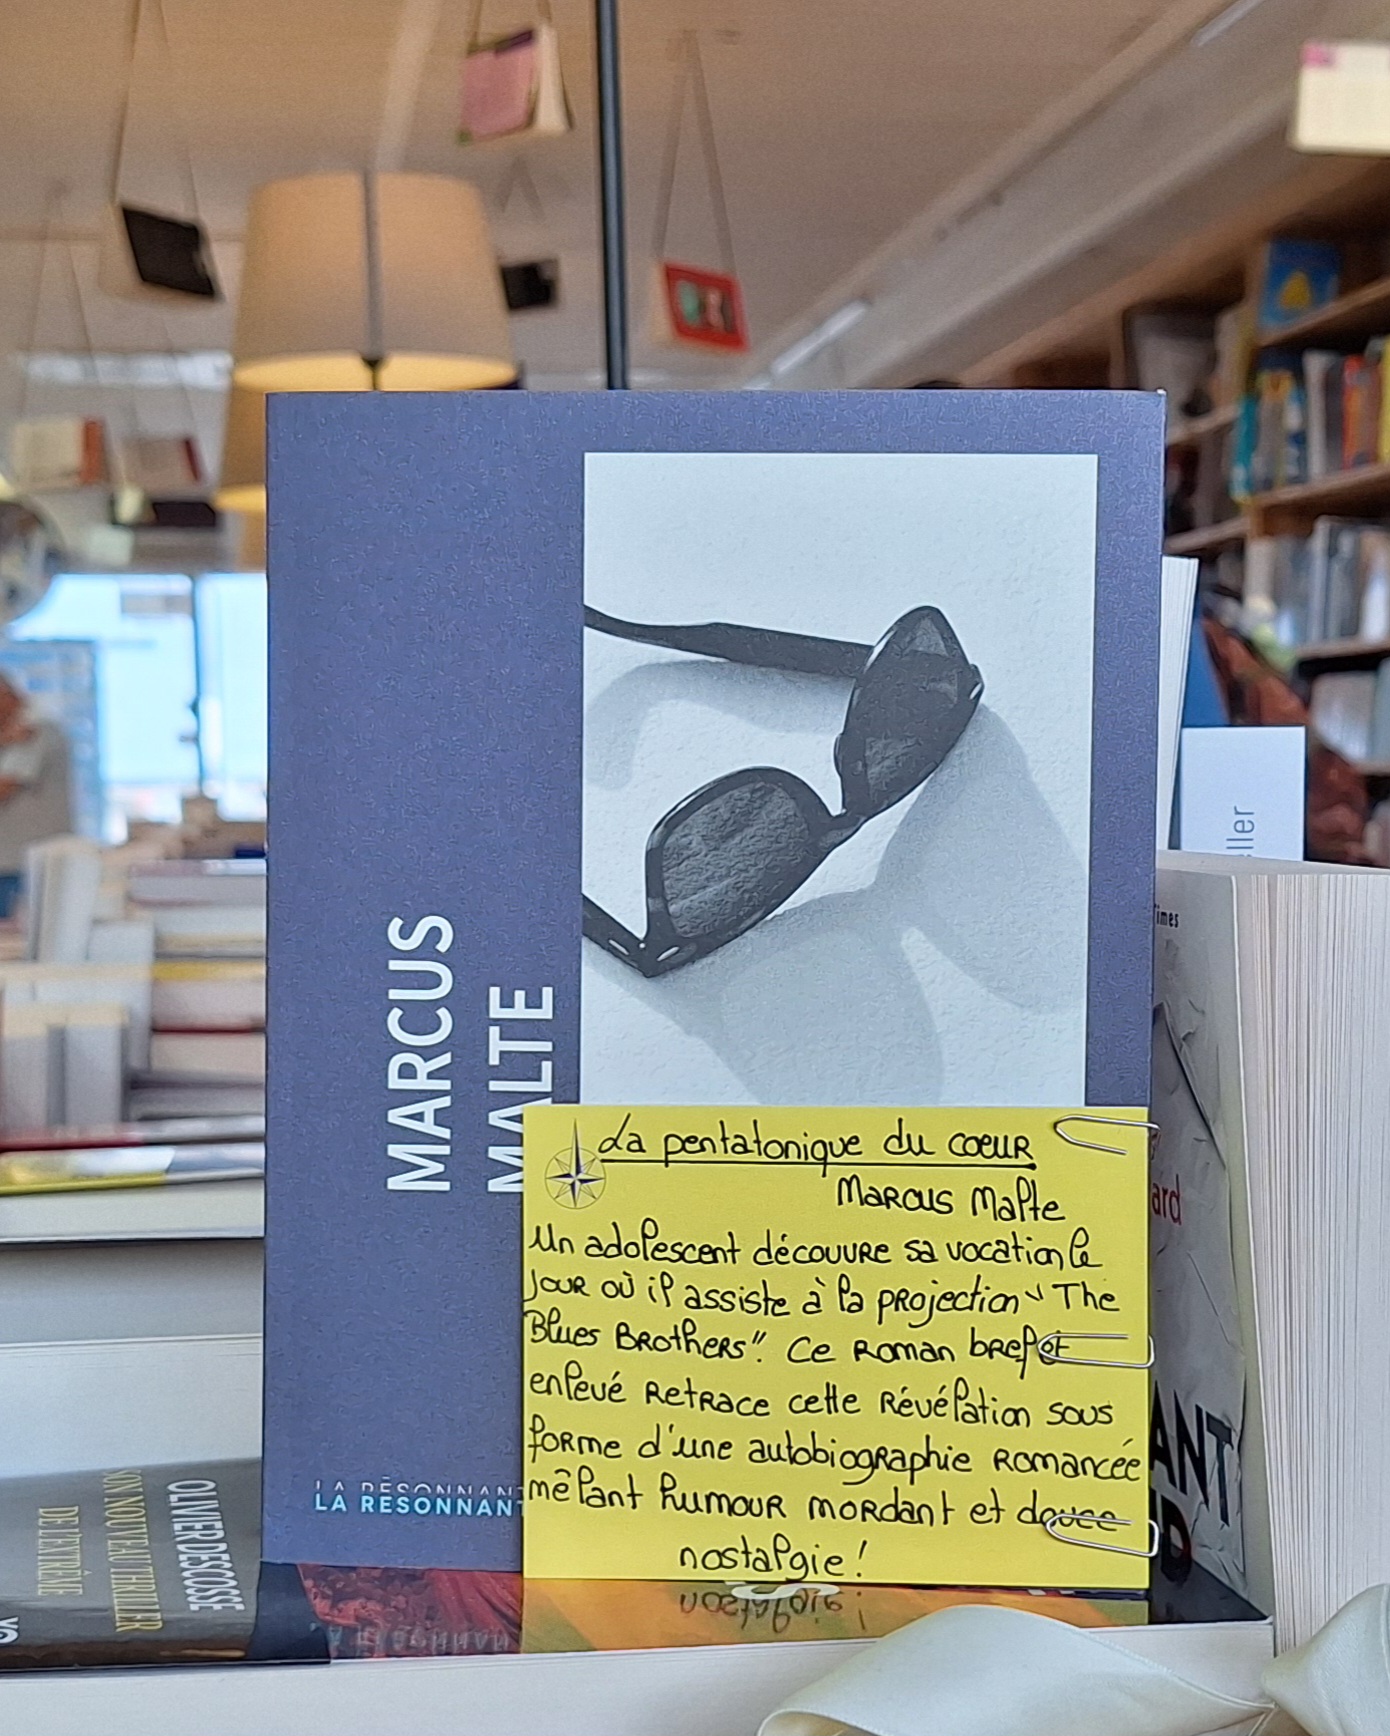 MARCUS
MALTE
LA RÉSONNANT
La pentatonique du coeur
Marcus Malte
Un adolescent découvre sa vocation le
jour où il assiste à la projection "The
Blues Brothers". Ce roman bref et
enlevé retrace cette révélation sous
forme d'une autobiographie romancée
mêlant humour mordant et douce
nostalgie !
OLIVIER DESCOSSE
SON NOUVEAU THRILLER
DE L'EXTRÊME
XO
eller
Times
ard
ANT